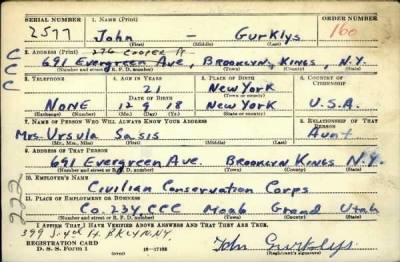 SERIAL NUMBER 1. NAME (Print) ORDER NUMBER
2577 John - Gurklys 160
(First) (Middle) (Last)
276 Cooper St
2. ADDRESS (Print)
691 Evergreen Ave, Brooklyn, Kings, N.Y.
(Number and street or R. F. D. number) (Town) (County) (State)
3. TELEPHONE 4. AGE IN YEARS 5. PLACE OF BIRTH 6. COUNTRY OF CITIZENSHIP
21 New York
DATE OF BIRTH (Town or county)
NONE 12 9 18 New York U.S.A.
(Exchange) (Number) (Mo.) (Day) (Yr.) (State or country)
7. NAME OF PERSON WHO WILL ALWAYS KNOW YOUR ADDRESS 8. RELATIONSHIP OF THAT PERSON
Mrs. Ursula Sasis Aunt
(Mr., Mrs., Miss) (First) (Middle) (Last)
9. ADDRESS OF THAT PERSON
691 Evergreen Ave. Brooklyn Kings N.Y.
(Number and street or R. F. D. number) (Town) (County) (State)
10. EMPLOYER'S NAME
Civilian Conservation Corps
11. PLACE OF EMPLOYMENT OR BUSINESS
Co. 234 CCC Moab Grand Utah
(Number and street or R. F. D. number) (Town) (County) (State)
I AFFIRM THAT I HAVE VERIFIED ABOVE ANSWERS AND THAT THEY ARE TRUE.
399 S. 4th St. BKLYN NY.
REGISTRATION CARD
D. S. S. Form 1 16-17105
John Gurklys
(Registrant's signature)
CCC